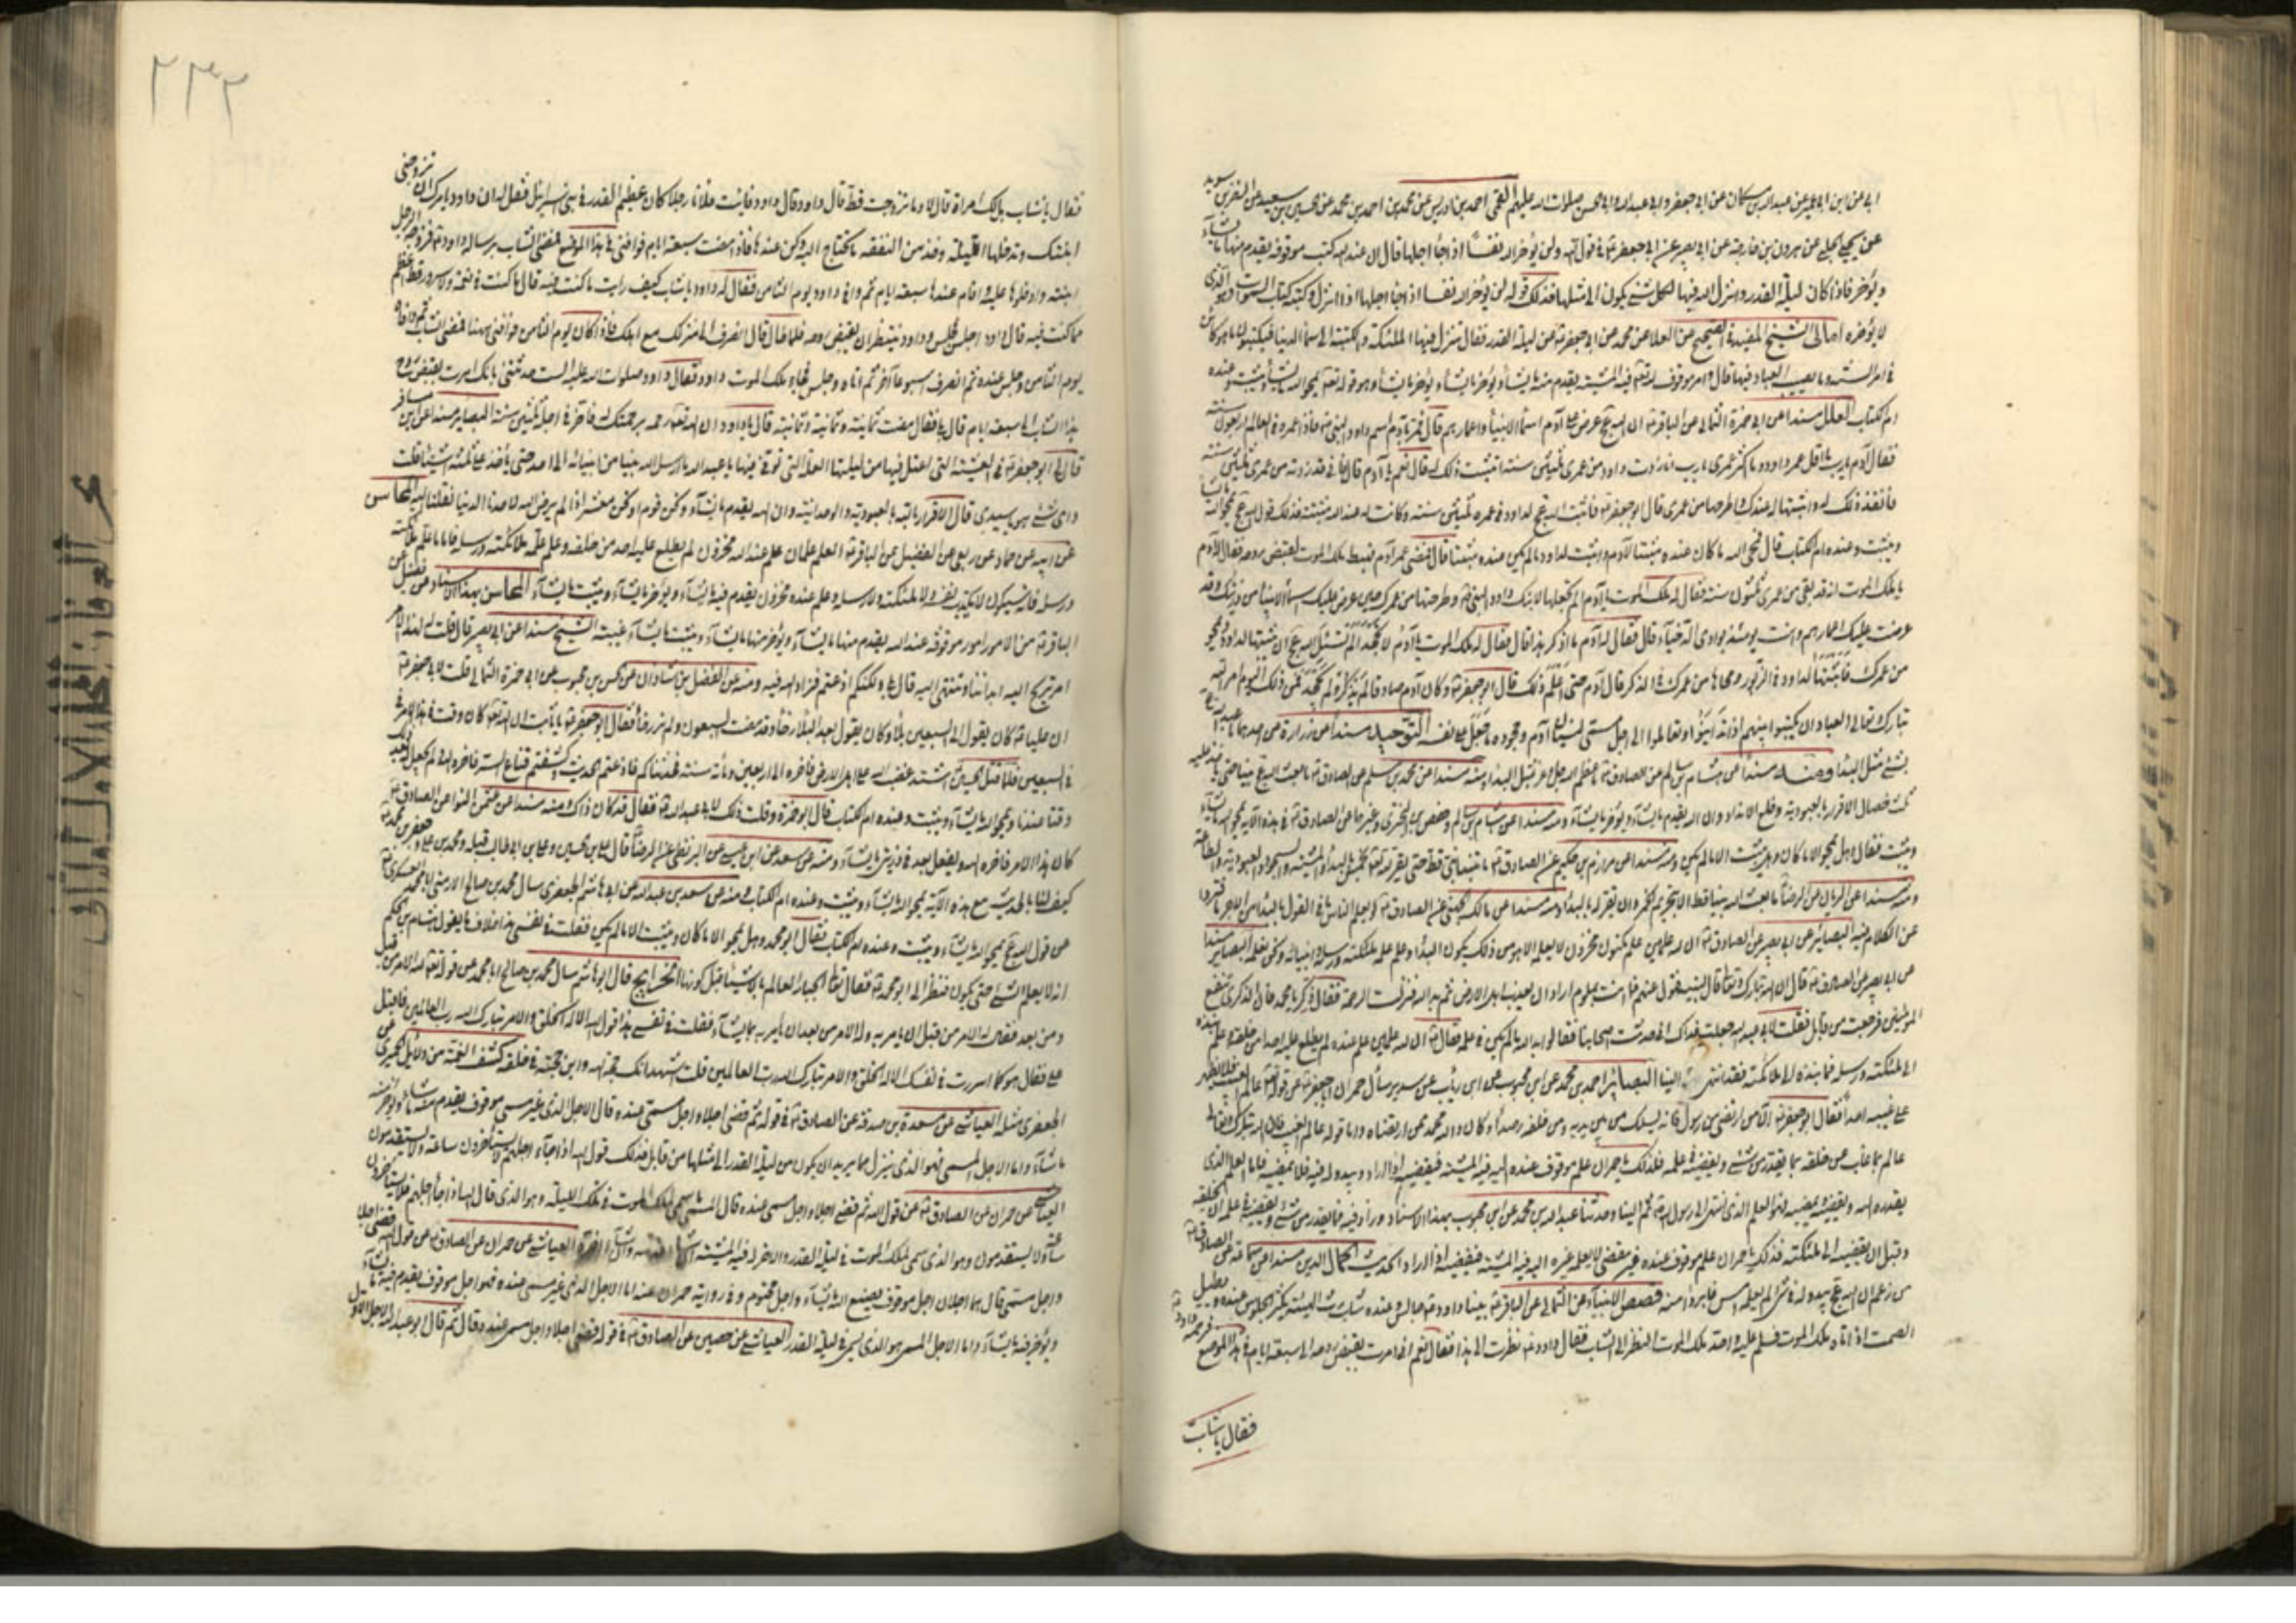 ابي عن ابن ابي عمير عن عبدالله بن مسكان عن ابي جعفر وابي عبدالله وابي الحسن صلوات الله عليهم القمي احمد بن ادريس عن محمد بن احمد بن محمد عن الحسين بن سعيد عن النضر بن سويد
عن يحيى الحلبي عن هرون بن خارجة عن ابي بصير عن ابي جعفر في قول الله ولن يؤخر الله نفسا اذا جاء اجلها قال ان عند الله كتب موقوفة يقدم منها ما يشاء
ويؤخر فاذا كان ليلة القدر وانزل الله فيها كل شيء يكون الى مثلها فذلك قوله لن يؤخر الله نفسا اذا جاء اجلها اذا انزل وكتبه كتاب السموات وهو الذي
لا يؤخره امالي الشيخ المفيد في الصحيح عن العلا عن محمد عن ابي جعفر عن ليلة القدر فقال تنزل فيها الملئكة والكتبة الى سماء الدنيا فيكتبون ما هو كائن
في امر السنة وما يصيب العباد فيها قال وامر موقوف لله تعالى فيه المشية يقدم منه ما يشاء ويؤخر ما يشاء وهو قوله تعالى يمحو الله ما يشاء ويثبت وعنده
ام الكتاب العلل مسندا عن ابي حمزة الثمالي عن الباقر ان الله عج عرض على آدم اسماء الانبياء واعمارهم قال فمر بآدم اسم داود النبي فاذا عمره في العالم اربعون سنة
فقال آدم يا رب ما اقل عمر داود وما اكثر عمري يا رب ان انا زدت داود من عمري ثلثين سنة اتثبت ذلك له قال نعم يا آدم قال فاني قد زدته من عمري ثلثين سنة
فانفذ ذلك له واثبتها له عندك واطرحها من عمري قال ابو جعفر فاثبت الله عج لداود في عمره ثلثين سنة وكانت له عند الله مثبتة فذلك قول الله عج يمحو الله ما يشاء
ويثبت وعنده ام الكتاب قال فمحى الله ما كان عنده مثبتا لآدم واثبت لداود ما لم يكن عنده مثبتا قال فمضى عمر آدم فهبط ملك الموت لقبض روحه فقال له آدم
يا ملك الموت انه قد بقي من عمري ثلثون سنة فقال له ملك الموت يا آدم الم تجعلها لابنك داود النبي وطرحتها من عمرك حين عرض عليك اسماء الانبياء من ذريتك وقد
عرضت عليك اعمارهم وانت يومئذ بوادي الدخياء قال فقال له آدم ما اذكر هذا قال فقال له ملك الموت يا آدم لا تجحد الم تسئل الله عج ان يثبتها لداود ويمحو
من عمرك فاثبتها لداود في الزبور ومحاها من عمرك في الذكر قال آدم حتى اعلم ذلك قال ابو جعفر وكان آدم صادقا لم يذكر ولم يجحد فمن ذلك اليوم امر الله
تبارك وتعالى العباد ان يكتبوا بينهم اذا تداينوا وتعاملوا الى اجل مسمى لنسيان آدم وجحوده ما جعل على نفسه التوحيد مسندا عن زرارة عن احدهما ما عبد الله عج
بشئ مثل البداء ومنه مسندا عن هشام بن سالم عن الصادق ما عظم الله عز وجل بمثل البداء ومنه مسندا عن محمد بن مسلم عن الصادق ما بعث الله عج نبيا حتى ياخذ عليه
ثلث خصال الاقرار بالعبودية وخلع الانداد وان الله يقدم ما يشاء ويؤخر ما يشاء ومنه مسندا عن هشام بن سالم وحفص بن البختري وغيرهما عن الصادق في هذه الآية يمحو الله ما يشاء
ويثبت فقال وهل يمحو الا ما كان وهل يثبت الا ما لم يكن ومنه مسندا عن مرازم بن حكيم عن الصادق ما تنبأ نبي قط حتى يقر لله تعالى بخمس بالبداء والمشية والسجود والعبودية والطاعة
ومنه مسندا عن الريان عن الرضا ما بعث الله نبيا قط الا بتحريم الخمر وان يقر له بالبداء ومنه مسندا عن مالك الجهني عن الصادق لو يعلم الناس ما في القول بالبداء من الاجر ما فتروا
عن الكلام فيه البصائر عن ابي بصير عن الصادق ان لله علمين علم مكنون مخزون لا يعلمه الا هو من ذلك يكون البداء وعلم علمه ملئكته ورسله وانبيائه ونحن نعلمه البصاير مسندا
عن ابي بصير عن الصادق قال ان الله تبارك وتعالى قال لنبيه فتول عنهم فما انت بملوم اراد ان يعذب اهل الارض ثم بدا لله فنزلت الرحمة فقال ذكر يا محمد فان الذكرى تنفع
المؤمنين فرجعت من قابل فقلت لابي عبدالله جعلت فداك اني حدثت اصحابنا فقالوا بدا لله ما لم يكن في علمه فقال ان لله علمين علم عنده لم يطلع عليه احدا من خلقه وعلم نبذه
الى ملئكته ورسله فما نبذه الى ملائكته فقد انتهى الينا البصائر احمد بن محمد عن ابن محبوب عن ابن رئاب عن سدير سأل حمران ابا جعفر عن قوله تعالى عالم الغيب فلا يظهر
على غيبه احدا فقال ابو جعفر الا من ارتضى من رسول فانه يسلك من بين يديه ومن خلفه رصدا وكان والله محمد ممن ارتضاه واما قوله عالم الغيب فان الله تبارك وتعالى
عالم بما غاب عن خلقه بما يقدر من شيء ويقضيه في علمه فذلك يا حمران علم موقوف عنده اليه فيه المشية فيقضيه اذا اراد ويبدو له فيه فلا يمضيه فاما العلم الذي
يقدره الله ويقضيه ويمضيه فهو العلم الذي انتهى الى رسول الله ثم الينا وحدثنا عبدالله بن محمد عن ابن محبوب بهذا الاسناد وزاد فيه فما يقدر من شيء ويقضيه في علمه ان يخلقه
وقبل ان يقضيه الى ملئكته فذلك يا حمران علم موقوف عنده غير مقضي لا يعلمه غيره اليه فيه المشية فيقضيه اذا اراد الحديث اكمال الدين مسندا عن سماعة عن الصادق
من زعم ان الله عج يبدو له في شيء لم يعلمه امس فابرؤا منه قصص الانبياء عن الثمالي عن الباقر بينا داود جالس وعنده شاب رث الهيئة يكثر الجلوس عنده ويطيل
الصمت اذ اتاه ملك الموت فسلم عليه واحد ملك الموت النظر الى الشاب فقال داود نظرت الى هذا فقال نعم اني امرت بقبض روحه الى سبعة ايام في هذا الموضع
فرحمه داود
فقال يا شاب
٢٣٢
فقال يا شاب هل لك امراة قال لا وما تزوجت قط قال داود فأت فلانا رجلا كان عظيم القدر في بني اسرائيل فقل له ان داود يامرك ان تزوجني
ابنتك وتدخلها الليلة وخذ من النفقة ما تحتاج اليه وكن عندها فاذا مضت سبعة ايام فوافني في هذا الموضع فمضى الشاب برسالة داود فزوجه الرجل
ابنته وادخلوها عليه واقام عندها سبعة ايام ثم وافى داود يوم الثامن فقال له داود يا شاب كيف رايت ما كنت فيه قال ما كنت في نعمة ولا سرور قط اعظم
مما كنت فيه قال داود اجلس فجلس وداود ينتظر ان يقبض روحه فلما طال قال انصرف الى منزلك فكن مع اهلك فاذا كان يوم الثامن فوافني ههنا فمضى الشاب ثم وافاه
يوم الثامن وجلس عنده ثم انصرف اسبوعا آخر ثم اتاه وجلس فجاء ملك الموت داود فقال داود صلوات الله عليه الست حدثتني بانك امرت بقبض روح
هذا الشاب الى سبعة ايام قال بلى فقال مضت ثمانية وثمانية وثمانية قال يا داود ان الله تعالى رحمه برحمتك له فاخر في اجله ثلثين سنة البصاير مسندا عن ابن مسافر
قال لي ابو جعفر في العشية التي اعتل فيها من ليلتها العلة التي توفي فيها يا عبدالله ما ارسل الله نبيا من انبيائه الى احد حتى ياخذ عليه ثلثة اشياء قلت
واي شيء هو يا سيدي قال الاقرار بالله بالعبودية والوحدانية وان الله يقدم ما يشاء ونحن قوم او نحن معشر اذا لم يرض الله لاحدنا الدنيا نقلنا اليه المحاسن
عن ابيه عن حماد عن ربعي عن الفضيل عن الباقر العلم علمان علم عند الله مخزون لم يطلع عليه احد من خلقه وعلم علمه ملائكته ورسله فاما ما علم ملائكته
ورسله فانه سيكون لا يكذب نفسه ولا ملئكته ولا رسله وعلم عنده مخزون يقدم فيه ما يشاء ويؤخر ما يشاء ويثبت ما يشاء المحاسن بهذا الاسناد عن فضيل عن
الباقر من الامور امور موقوفة عند الله يقدم منها ما يشاء ويؤخر منها ما يشاء ويثبت ما يشاء غيبة الشيخ مسندا عن ابي بصير قال قلت له الهذا الامر
امر تريح اليه ابداننا وننتهي اليه قال بلى ولكنكم اذعتم فزاد الله فيه ومنه عن الفضل بن شاذان عن الحسن بن محبوب عن ابي حمزة الثمالي قلت لابي جعفر
ان عليا كان يقول الى السبعين بلاء وكان يقول بعد البلاء رخاء وقد مضت السبعون ولم نر رخاء فقال ابو جعفر يا ثابت ان الله تعالى كان وقت هذا الامر
في السبعين فلما قتل الحسين اشتد غضب الله على اهل الارض فاخره الى اربعين ومائة سنة فحدثناكم فاذعتم الحديث وكشفتم قناع الستر فاخره الله ولم يجعل له بعد ذلك
وقتا عندنا ويمحو الله ما يشاء ويثبت وعنده ام الكتاب قال ابو حمزة وقلت ذلك لابي عبدالله فقال قد كان ذاك ومنه مسندا عن عثمن النوا عن الصادق
كان هذا الامر في فاخره الله ويفعل بعد في ذريتي ما يشاء ومنه عن سعد عن ابن عيسى عن البزنطي عن الرضا قال علي بن الحسين وعلي بن ابي طالب قبله ومحمد بن علي وجعفر بن محمد
كيف لنا بالحديث مع هذه الآية يمحو الله ما يشاء ويثبت وعنده ام الكتاب ومنه عن سعد بن عبدالله عن ابي هاشم الجعفري سال محمد بن صالح الارمني ابا محمد العسكري
عن قول الله عج يمحو الله ما يشاء ويثبت وعنده ام الكتاب فقال ابو محمد وهل يمحو الا ما كان ويثبت الا ما لم يكن فقلت في نفسي هذا خلاف ما يقول هشام بن الحكم
انه لا يعلم الشيء حتى يكون فنظر الي ابو محمد فقال تعالى الجبار العالم بالاشياء قبل كونها الخرايج قال ابو هاشم سال محمد بن صالح ابا محمد عن قوله تعالى لله الامر من قبل
ومن بعد فقال له الامر من قبل ان يامر به وله الامر من بعد ان يامر به بما يشاء فقلت في نفسي هذا قول الله الا له الخلق والامر تبارك الله رب العالمين فاقبل
علي فقال هو كما اسررت في نفسك الا له الخلق والامر تبارك الله رب العالمين قلت اشهد انك حجة الله وابن حجته في خلقه كشف الغمة من دلائل الحميري عن
الجعفري مثله العياشي عن مسعدة بن صدقة عن الصادق في قوله ثم قضى اجلا واجل مسمى عنده قال الاجل الذي غير مسمى موقوف يقدم منه ما شاء ويؤخر منه
ما شاء واما الاجل المسمى فهو الذي ينزل مما يريد ان يكون من ليلة القدر الى مثلها من قابل فذلك قول الله اذا جاء اجلهم لا يستأخرون ساعة ولا يستقدمون
العياشي عن حمران عن الصادق عن قول الله ثم قضى اجلا واجل مسمى عنده قال المسمى ما سمي لملك الموت في تلك الليلة وهو الذي قال الله اذا جاء اجلهم فلا يستأخرون
ساعة ولا يستقدمون وهو الذي سمي لملك الموت في ليلة القدر والآخر له فيه المشية ان شاء قدمه وان شاء اخره العياشي عن حمران عن الصادق عن قول الله قضى اجلا
واجل مسمى قال هما اجلان اجل موقوف يصنع الله ما يشاء واجل محتوم وفي رواية حمران عنه اما الاجل الذي غير مسمى عنده فهو اجل موقوف يقدم فيه ما يشاء
ويؤخر فيه ما يشاء واما الاجل المسمى هو الذي يسمى في ليلة القدر العياشي عن حصين عن الصادق في قوله قضى اجلا واجل مسمى عنده قال ثم قال ابو عبدالله الاجل الاول